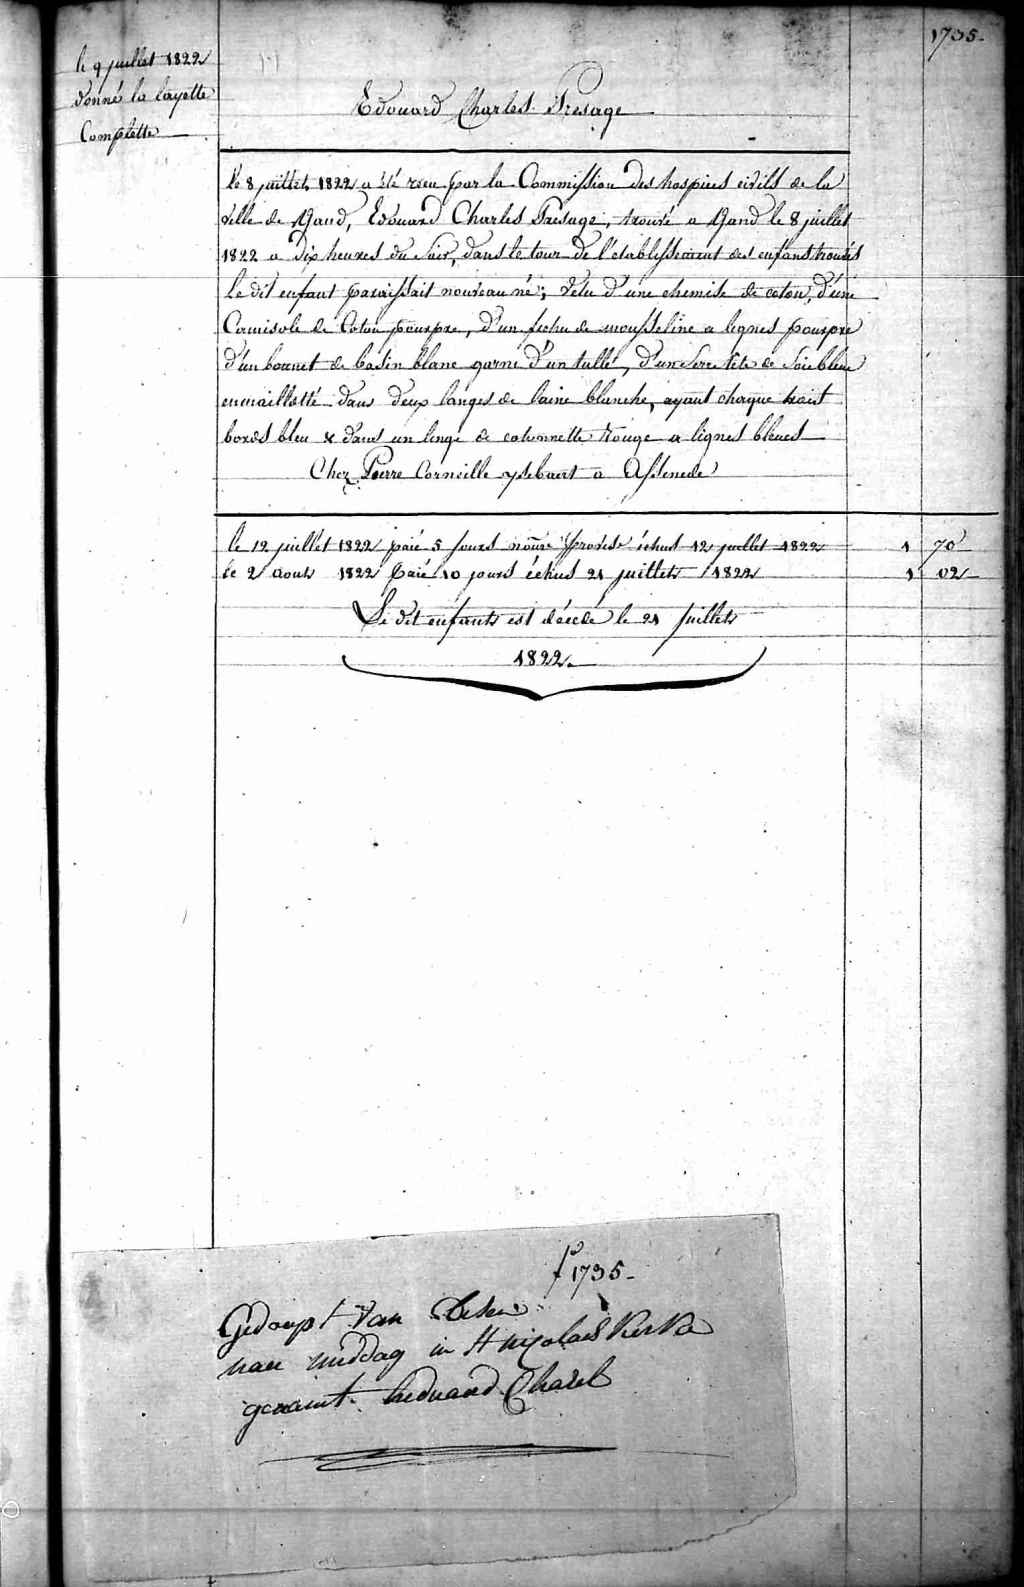 1735.
le 9 juillet 1822
donné la layette
Complette
Edouard Charles Presage
le 8 juillet 1822 a été recu par la Commission des hospices civils de la
ville de Gand, Edouard Charles Presage, trouvé a Gand le 8 juillet
1822 a dix heures du soir, dans le tour de l'etablissement des enfans trouvés
Le dit enfant paraissait nouveau né; vetu d'une chemise de coton, d'une
Camisole de Coton pourpre, d'un fichu de mousseline a lignes pourpre
d'un bonnet de basin blanc garni d'un tulle, d'un serre tête de soie bleue
enmaillotté dans deux langes de laine blanche, ayant chaque trois
bords bleu & dans un linge de cotonnette rouge a lignes bleues
Chez Pierre Corneille ysebaert a Assenede
le 12 juillet 1822 paié 5 jours échus 12 juillet 1822 1 70
le 2 aout 1822 paié 10 jours échus 21 juillets 1822 1 02
Le dit enfants est décédé le 21 juillets
1822.
fº 1735.
Gedoopt van desen
naer middag in St nicolaes kerke
genaemt Eeduaard Charel